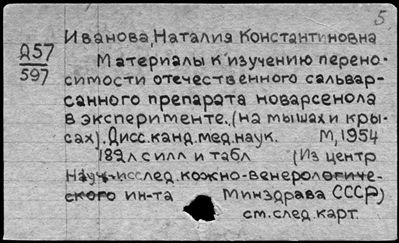 5
Иванова, Наталия Константиновна
Д57
597
Материалы к изучению перено-
симости отечественного сальвар-
санного препарата новарсенола
в эксперименте. (на мышах и кры-
сах). Дисс. канд. мед. наук. М, 1954
182 л с илл и табл (Из центр
науч-исслед. кожно-венерологиче-
ского ин-та Минздрава СССР)
см. след. карт